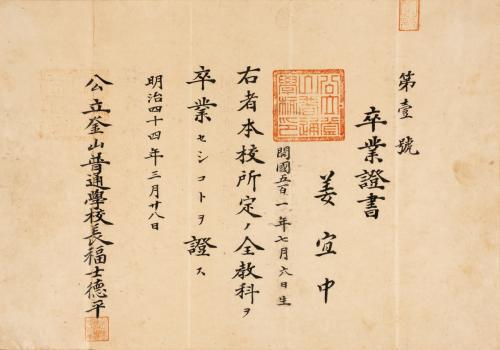 第壹號
卒業證書
姜宜中
開國五百一年七月六日生
右者本校所定ノ全教科ヲ
卒業セシコトヲ證ス
明治四十四年三月廿八日
公立釜山普通學校長福士德平